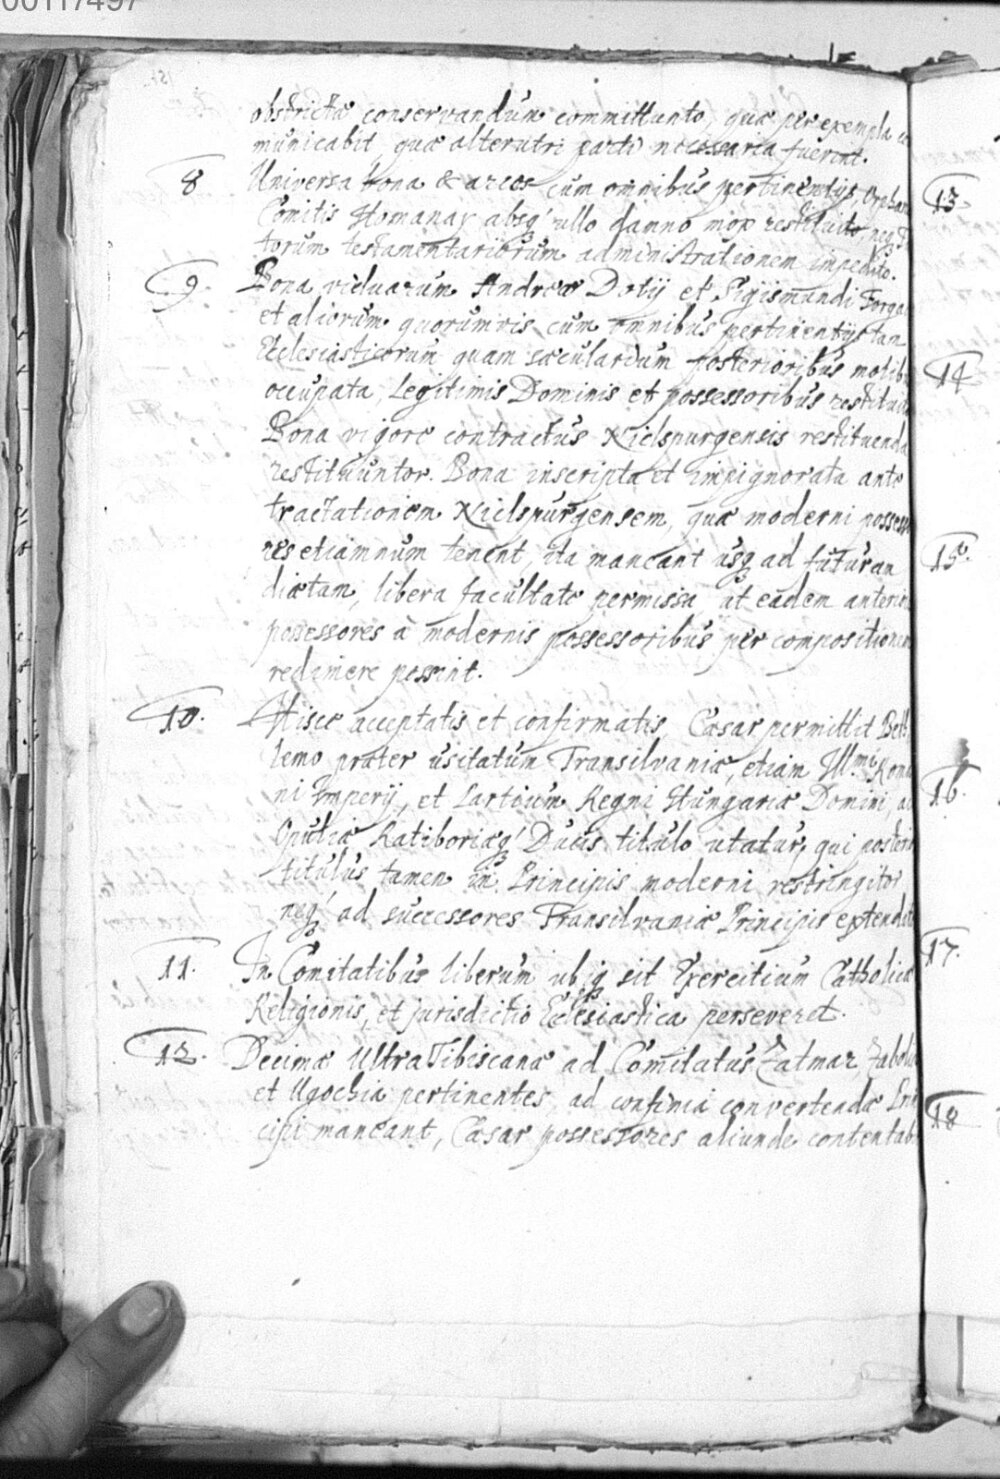 00117497
obstricta conservandum committunto, quæ per exempla co
municabit, quæ alterutri parti necessaria fuerint.
8 Universa bona & arces cum omnibus pertinentijs, Orphan
Comitis Homanay absq ullo damno mox restituito, neq
torum testamentariorum administrationem impedito.
9. Bona viduarum Andreæ Dotij et Sigismundi Forga
et aliorum quorumvis cum omnibus pertinentijs tam
Ecclesiasticorum quam sæcularium posterioribus motib
occupata, Legitimis Dominis et possessoribus restitua
Bona vigore contractus Niclspurgensis restituenda
restituuntor. Bona inscripta et impignorata ante
tractationem Niclspurgensem, quæ moderni possess
res etiamnum tenent, ita maneant usq ad futuram
diætam, libera facultate permissa, ut eadem anterio
possessores à modernis possessoribus per compositionem
redimere possint.
10. Hisce acceptatis et confirmatis, Cæsar permittit Beth
lemo præter usitatum Transilvaniæ, etiam Ill.mi Roma
ni Imperij, et Partium Regni Hungariæ Domini, ac
Opuliæ Ratiboriæq Ducis titulo utatur, qui posterio
titulus tamen in Principis moderni restringitor
neq ad successores Transilvaniæ Principis extendit
11. In Comitatibus liberum ubiq sit Exercitium Catholicæ
Religionis, et jurisdictio Ecclesiastica perseveret.
12. Decimæ UltraTibiscanæ ad Comitatus Zatmar, Zabol
et Ugochia pertinentes, ad confinia convertendæ Prin
cipi maneant, Cæsar possessores aliunde contentab
13
14
15.
16.
17.
18